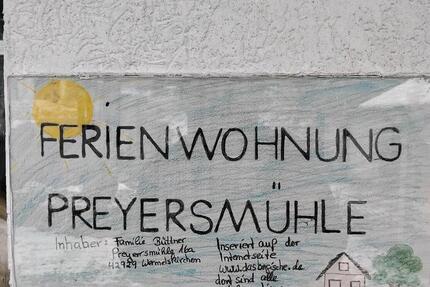 FERIENWOHNUNG
PREYERSMÜHLE
Inhaber: Familie Büttner
Preyersmühle 16a
42929 Wermelskirchen
Inseriert auf der
Internetseite
www.dasbergische.de
dort sind alle